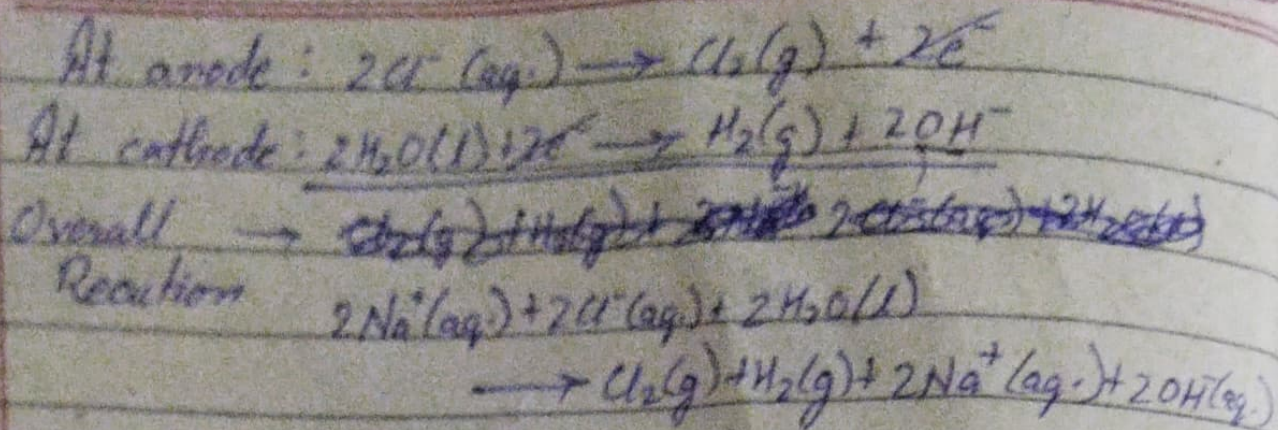 At anode : 2Cl⁻ (aq.) → Cl₂(g) + 2e⁻
At cathode : 2H₂O(l) + 2e⁻ → H₂(g) + 2OH⁻
Overall →
Reaction
2Na⁺(aq.) + 2Cl⁻(aq.) + 2H₂O(l)
→ Cl₂(g) + H₂(g) + 2Na⁺(aq.) + 2OH⁻(aq.)